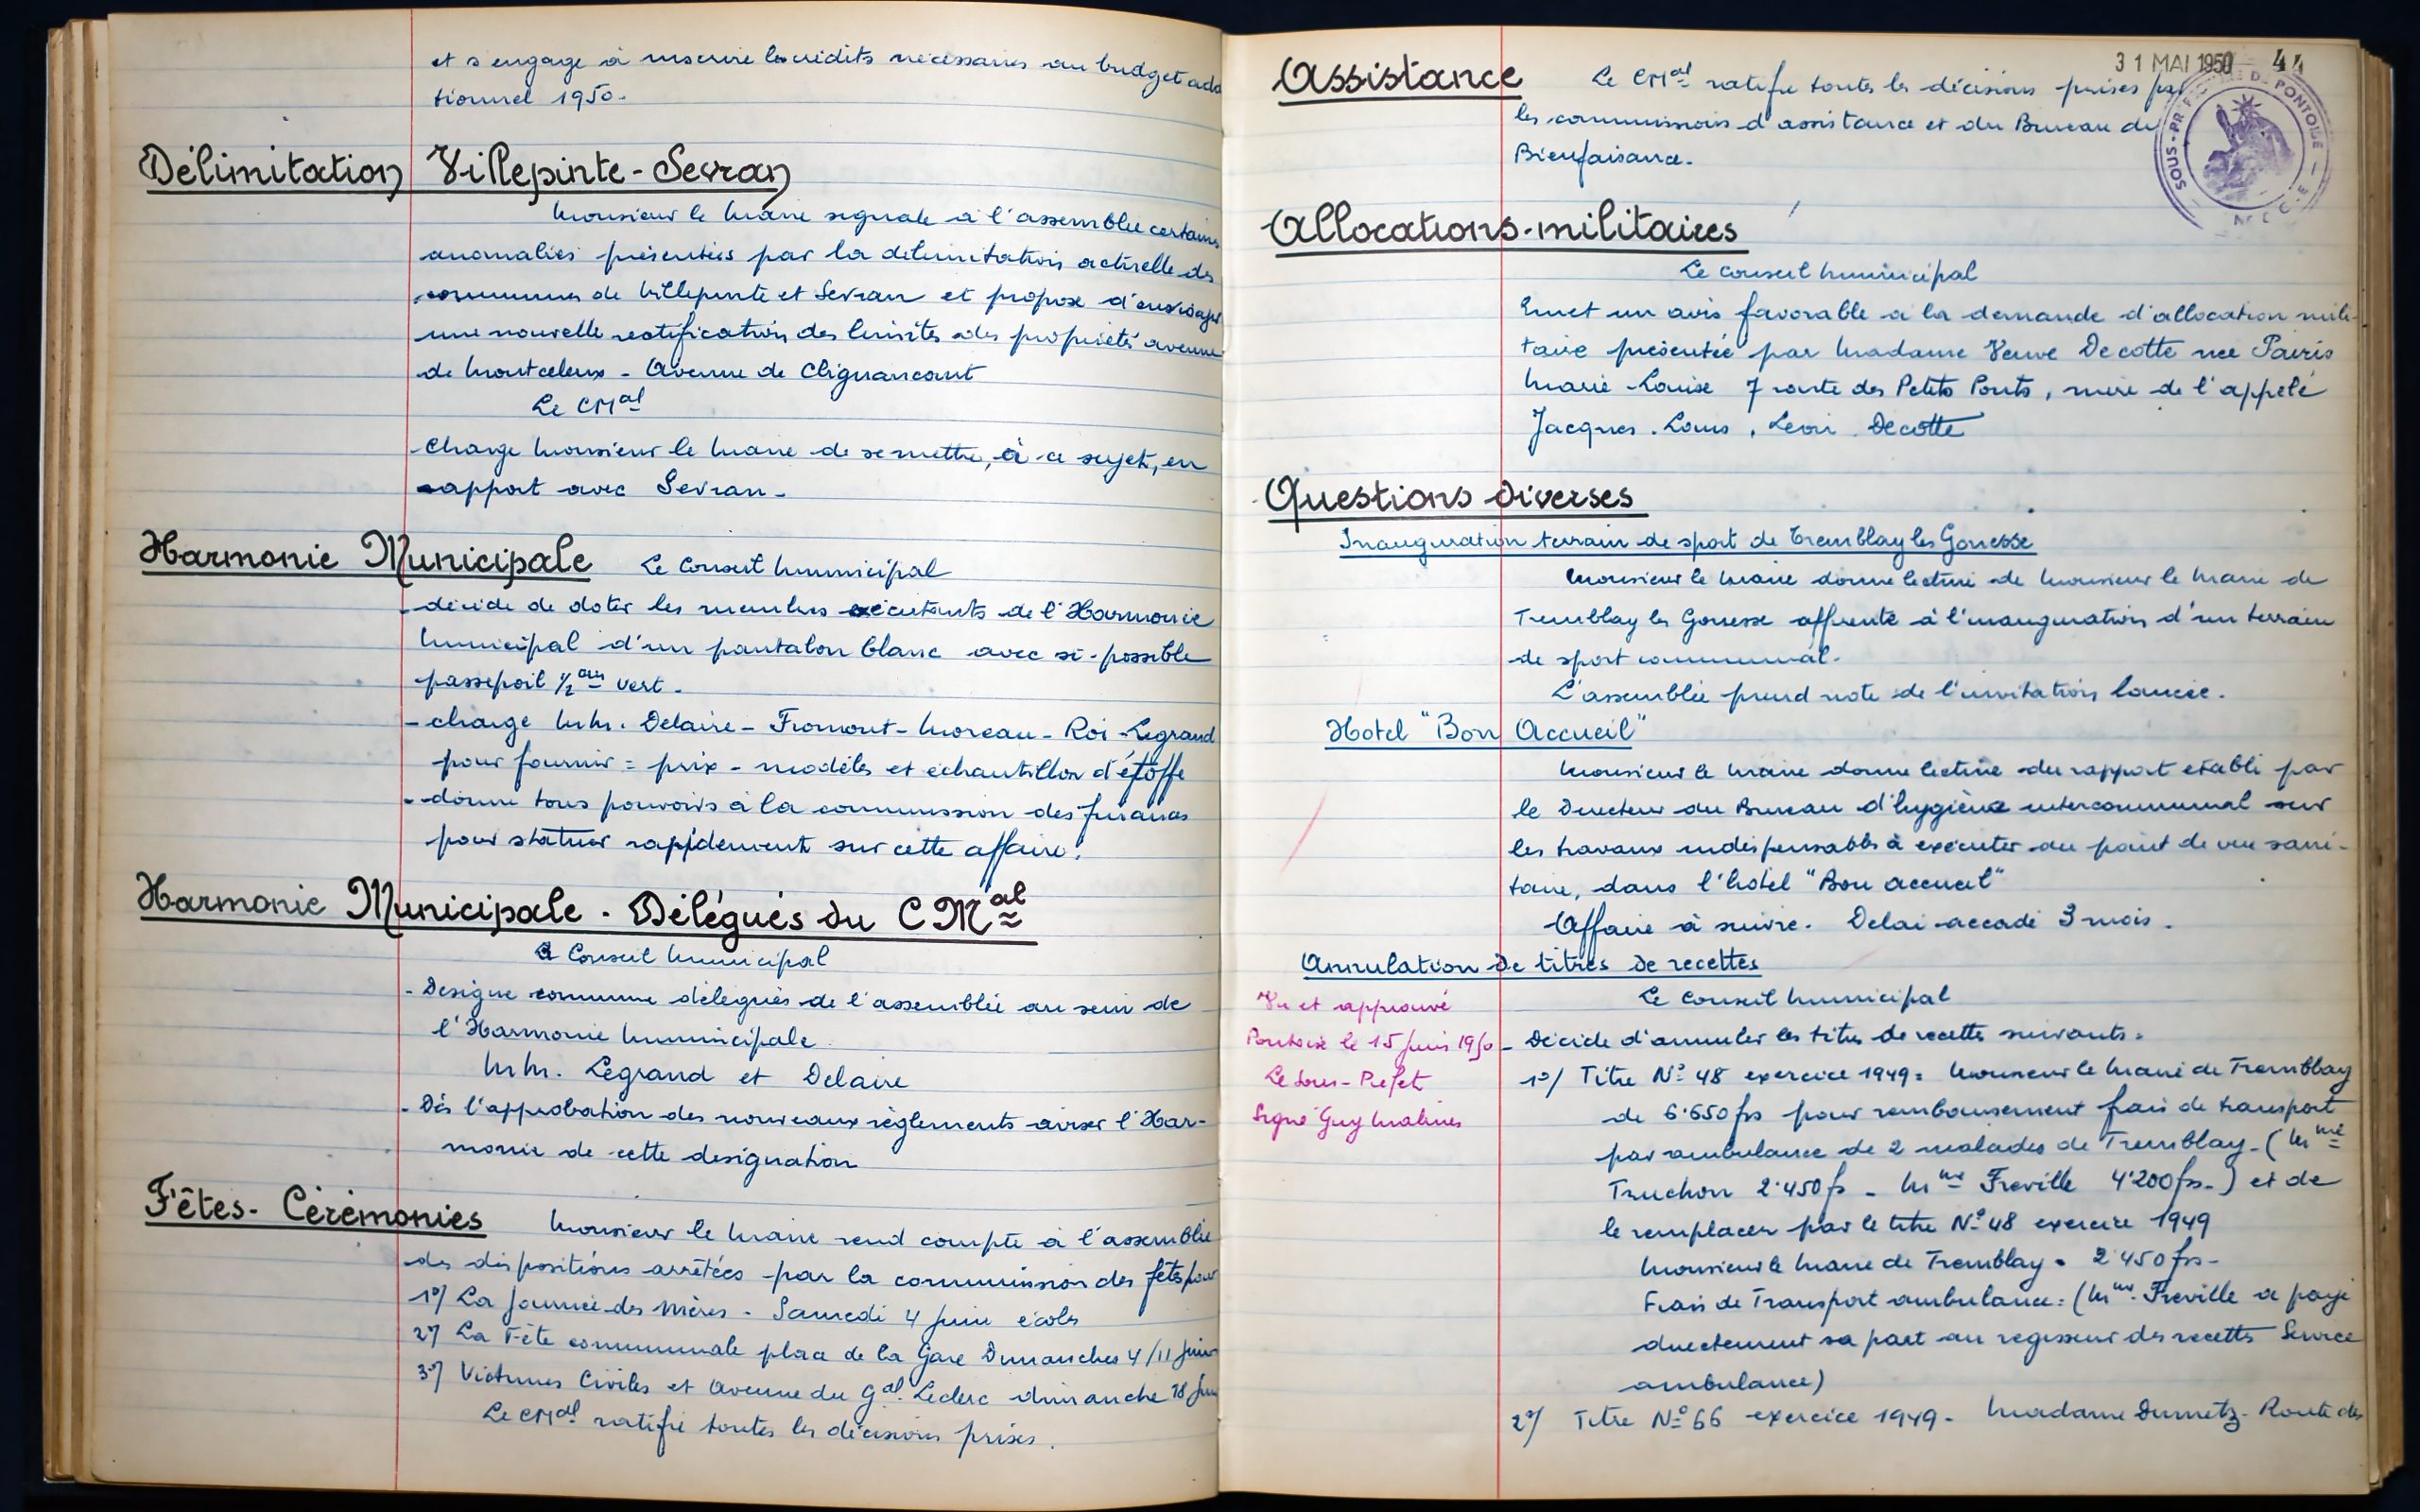 et s'engage à inscrire les crédits nécessaires au budget addi
tionnel 1950.
Délimitation Villepinte - Sevran
Monsieur le Maire signale à l'assemblée certaines
anomalies présentées par la délimitation actuelle des
communes de Villepinte et Sevran et propose d'envisager
une nouvelle rectification des limites des propriétés avenue
de Montceleux - Avenue de Clignancourt
Le CMal
- Charge Monsieur le Maire de se mettre, à ce sujet, en
rapport avec Sevran -
Harmonie Municipale Le Conseil Municipal
- décide de doter les membres exécutants de l'Harmonie
Municipal d'un pantalon blanc avec si-possible
passepoil vert.
- charge MM. Delaire - Fromont - Moreau - Roi - Legrand
pour fournir = prix - modèles et échantillon d'étoffe
- donne tous pouvoirs à la commission des finances
pour statuer rapidement sur cette affaire.
Harmonie Municipale - Délégués du C Mal
Le Conseil Municipal
- Designe comme délégués de l'assemblée au sein de
l'Harmonie Municipale
MM. Legrand et Delaire
- Dès l'approbation des nouveaux règlements aviser l'Har-
monie de cette designation
Fêtes - Cérémonies Monsieur le Maire rend compte à l'assemblée
des dispositions arrêtées par la commission des fêtes pour
1°/ La Journée des Mères - Samedi 4 Juin écoles
2°/ La Fête communale place de la Gare Dimanches 4/11 Juin
3°/ Victimes Civiles et Avenue du Gal. Leclerc dimanche 18 Juin
Le CMal ratifie toutes les décisions prises.
31 MAI 1950 44
SOUS-PRÉFECTURE DE PONTOISE
Assistance Le CMal ratifie toutes les décisions prises par
les commissions d'assistance et du Bureau de
Bienfaisance.
Allocations-militaires
Le Conseil Municipal
Emet un avis favorable a la demande d'allocation mili-
taire présentée par Madame Veuve Decotte née Pairis
Marie-Louise 7 route des Petits Ponts, mère de l'appelé
Jacques. Louis, Léon. Decotte
Questions diverses
Inauguration terrain de sport de Tremblay les Gonesse
Monsieur le Maire donne lecture de Monsieur le Maire de
Tremblay les Gonesse afférente à l'inauguration d'un terrain
de sport communal.
L'assemblée prend note de l'invitation lancée.
Hotel "Bon Accueil"
Monsieur le Maire donne lecture du rapport etabli par
le Directeur du Bureau d'hygiène intercommunal sur
les travaux indispensables à exécuter au point de vue sani-
taire, dans l'hôtel "Bon accueil"
Affaire à suivre. Delai accordé 3 mois.
Annulation de titres de recettes
Le Conseil Municipal
Vu et approuvé
Pontoise le 15 Juin 1950
Le Sous-Préfet
Signé Guy Malines
- Décide d'annuler les titres de recette suivants:
1°/ Titre N° 48 exercice 1949: Monsieur le Maire de Tremblay
de 6.650 frs pour remboursement frais de transport
par ambulance de 2 malades de Tremblay - (Mme
Truchon 2.450 fs - Mme Freville 4.200 frs.) et de
le remplacer par le titre N° 48 exercice 1949
Monsieur le Maire de Tremblay. 2.450 frs -
Frais de Transport ambulance: (Mme. Freville a payé
directement sa part au regisseur des recettes Service
ambulance)
2°/ Titre N° 66 exercice 1949 - Madame Dumetz - Route des